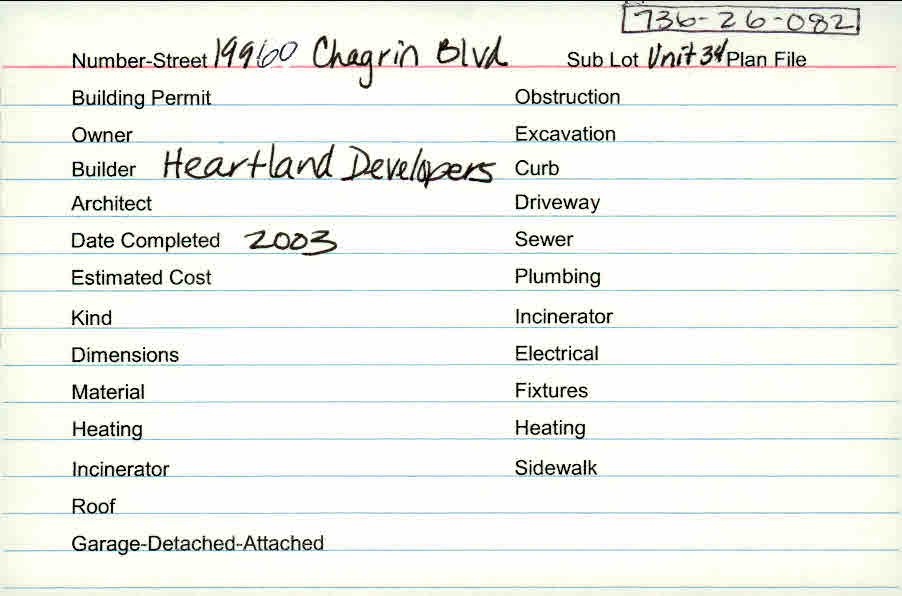 736-26-082
Number-Street 19960 Chagrin Blvd Sub Lot Unit 34 Plan File
Building Permit Obstruction
Owner Excavation
Builder Heartland Developers Curb
Architect Driveway
Date Completed 2003 Sewer
Estimated Cost Plumbing
Kind Incinerator
Dimensions Electrical
Material Fixtures
Heating Heating
Incinerator Sidewalk
Roof
Garage-Detached-Attached